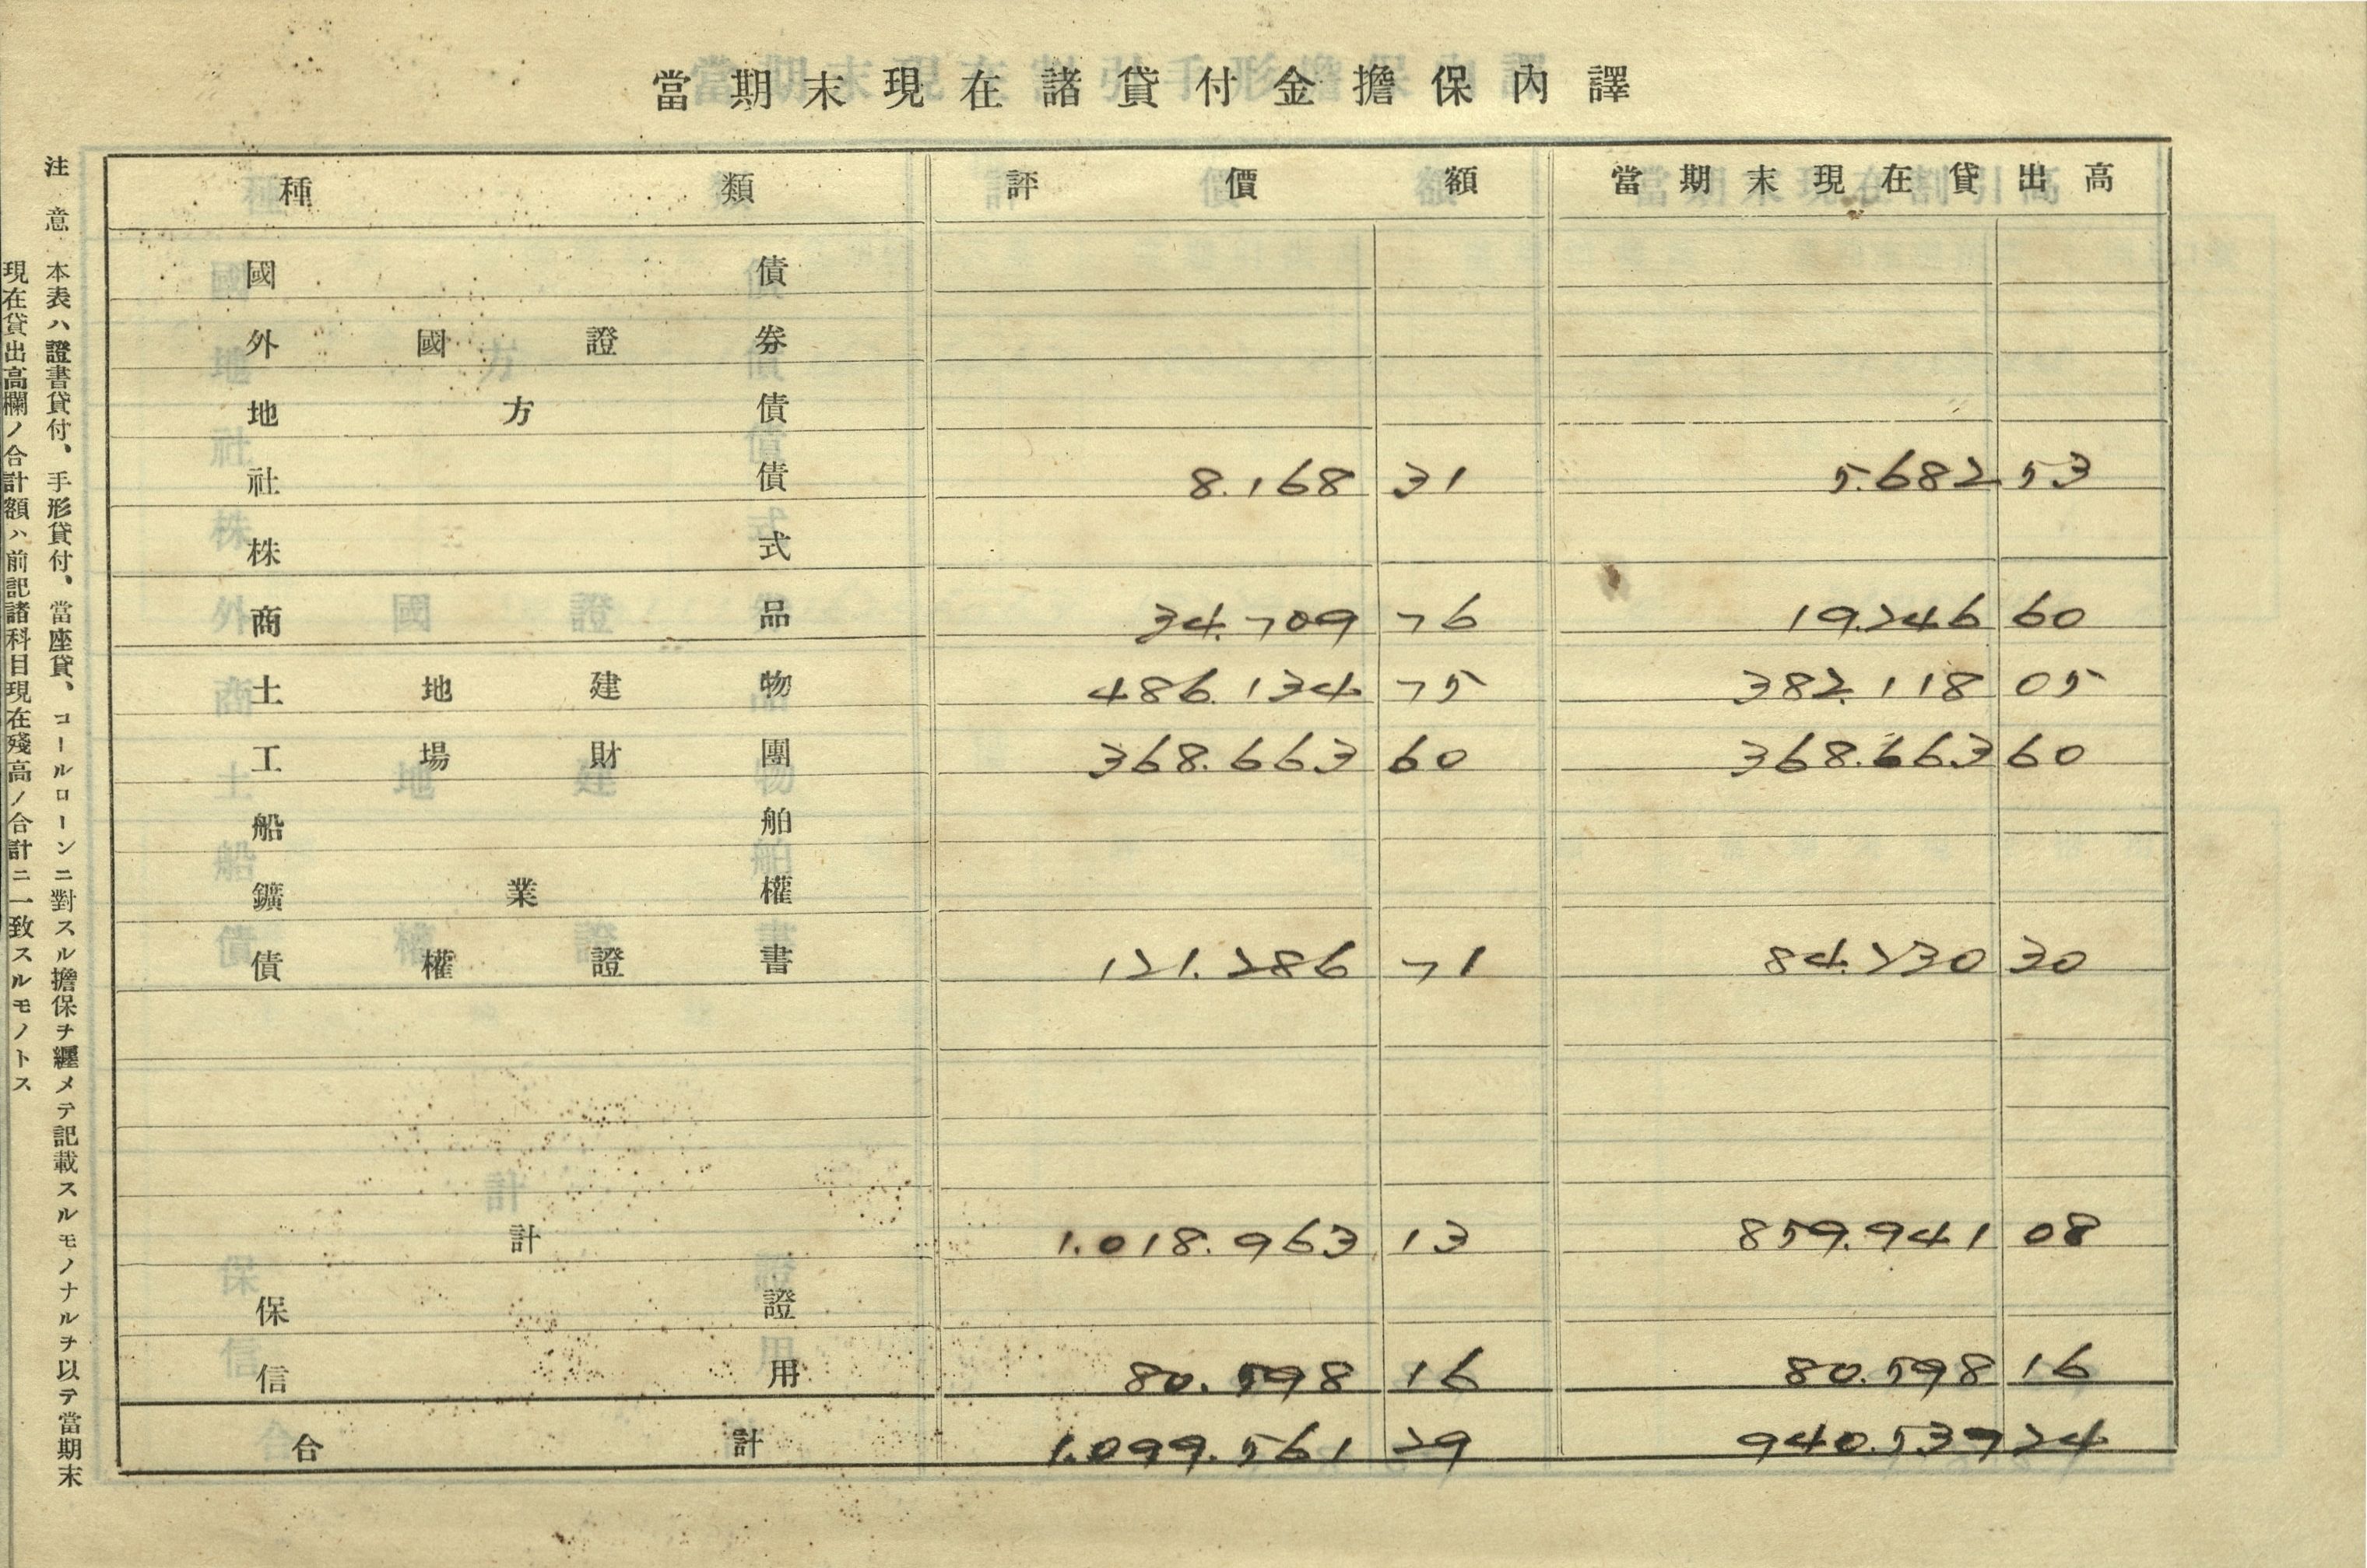 當期末現在諸貸付金擔保內譯
種類 評價額 當期末現在貸出高
國債
外國證券
地方債
社債 8.168 31 5.682 53
株式
商品 34.709 76 19.246 60
土地建物 486.134 75 382.118 05
工場財團 368.663 60 368.663 60
船舶
鑛業權
債權證書 121.286 71 84.230 30
計 1.018.963 13 859.941 08
保證
信用 80.598 16 80.598 16
合計 1.099.561 29 940.539 24
注意 本表ハ證書貸付、手形貸付、當座貸、コールローンニ對スル擔保ヲ纒メテ記載スルモノナルヲ以テ當期末
現在貸出高欄ノ合計額ハ前記諸科目現在殘高ノ合計ニ一致スルモノトス